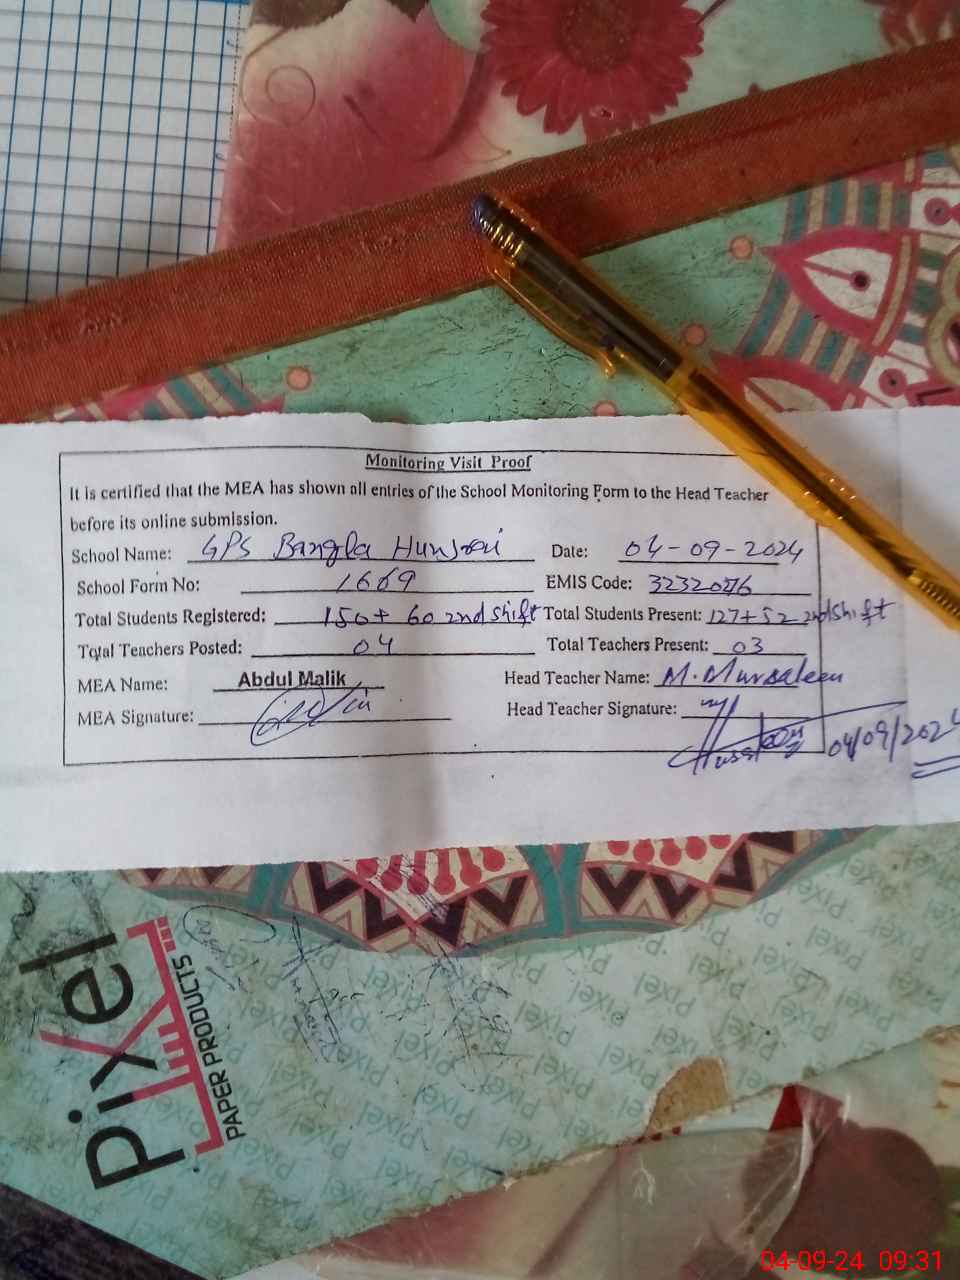 Monitoring Visit Proof
It is certified that the MEA has shown all entries of the School Monitoring Form to the Head Teacher
before its online submission.
School Name: GPS Bangla Date: 04-09-2024
School Form No: 1669 EMIS Code:
Total Students Registered: 150+ 60 2nd shift Total Students Present: 127+52 2nd shift
Total Teachers Posted: 04 Total Teachers Present: 03
MEA Name: Abdul Malik Head Teacher Name: M. Mursaleen
MEA Signature: Head Teacher Signature:
04/09/2024
Pixel
PAPER PRODUCTS
04-09-24 09:31